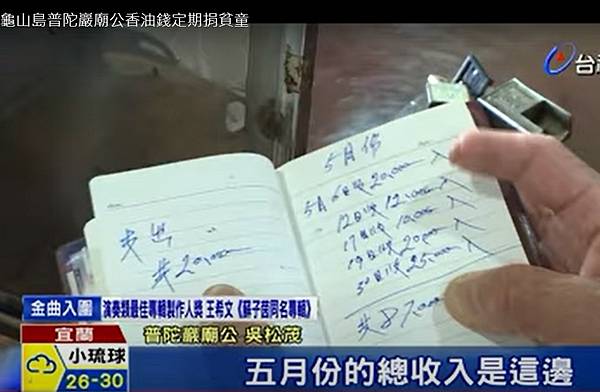 龜山島普陀巖廟公香油錢定期捐貧童
台視
5月份
5月6日收20,000 入
12日收12,000 入
17日收10,000 入
19日收20,000 入
30日收25,000 入
共87,000
支出
共20,000
金曲入圍 演奏類最佳專輯製作人獎 王希文《蘇子茵同名專輯》
宜蘭 普陀巖廟公 吳松茂
小琉球
26-30
五月份的總收入是這邊